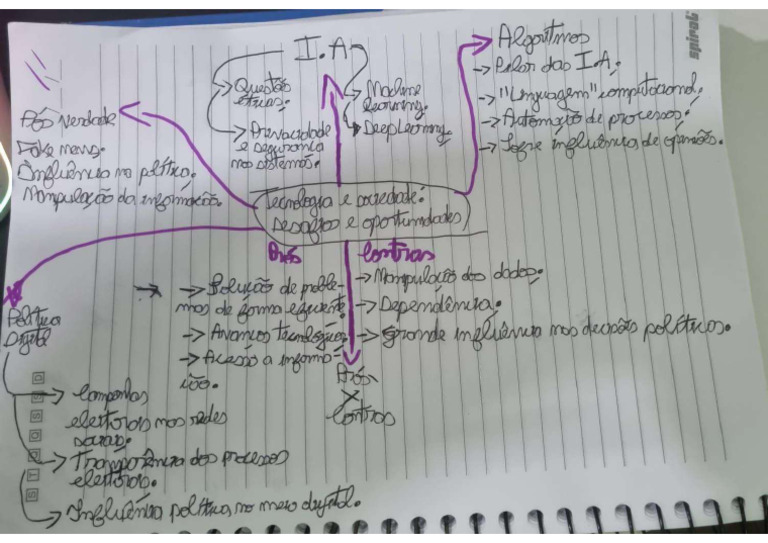 I.A
Questões
éticas.
Privacidade
e segurança
nos sistemas.
Machine
learning.
Deep Learning.
Algoritmos
Pilar das I.A;
"Linguagem" computacional;
Automação de processos;
Sofre influência de opiniões.
spiral
Pós verdade
Fake news.
Influência na política.
Manipulação da informação.
Tecnologia e sociedade:
Desafios e oportunidades
Prós
Solução de proble-
mas de forma
Avanços Tecnológicos
Acesso a informa-
ção.
Contras
Manipulação dos dados;
Dependência;
Grande influência nas decisões políticas.
Prós
X
Contras
Política
Digital
Campanhas
eleitorais nas redes
sociais.
Transparência dos processos
eleitorais.
Influência política no meio digital.